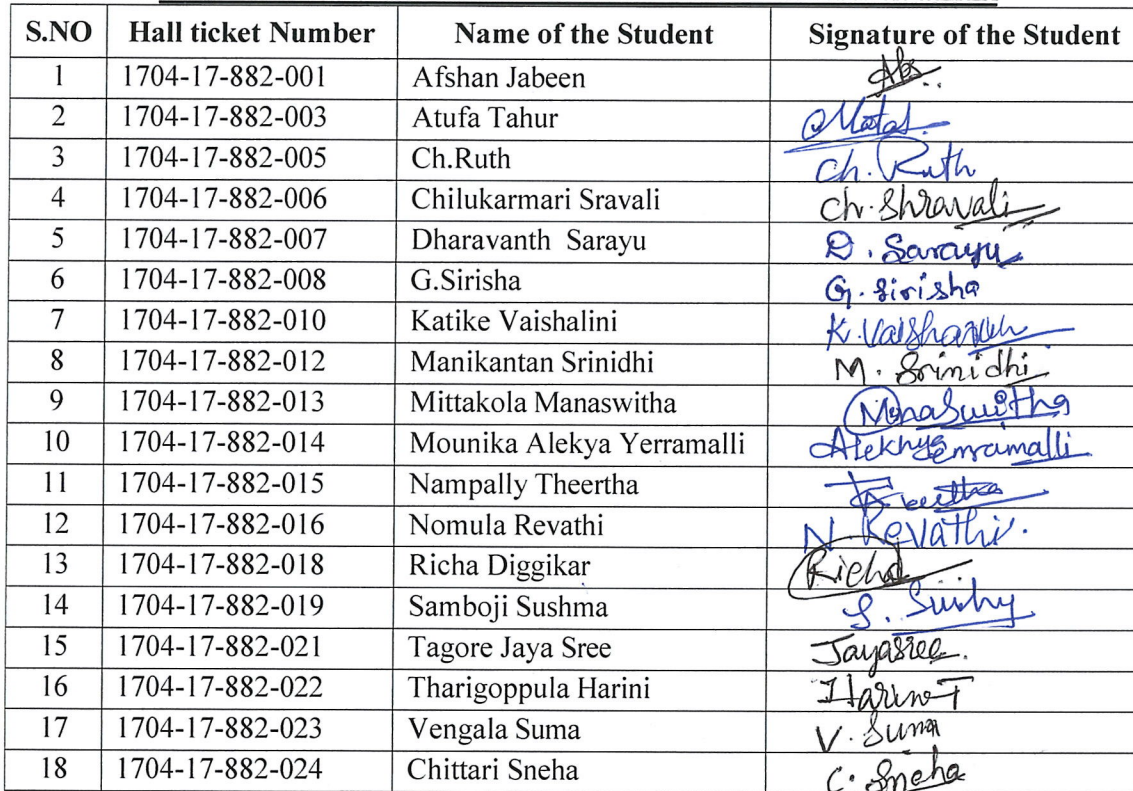 S.NO Hall ticket Number Name of the Student Signature of the Student
1 1704-17-882-001 Afshan Jabeen
2 1704-17-882-003 Atufa Tahur
3 1704-17-882-005 Ch.Ruth Ch. Ruth
4 1704-17-882-006 Chilukarmari Sravali Ch. Shravali
5 1704-17-882-007 Dharavanth Sarayu D. Sarayu
6 1704-17-882-008 G.Sirisha G. Sirisha
7 1704-17-882-010 Katike Vaishalini K.
8 1704-17-882-012 Manikantan Srinidhi M. Srinidhi
9 1704-17-882-013 Mittakola Manaswitha Manaswitha
10 1704-17-882-014 Mounika Alekya Yerramalli Alekhya
11 1704-17-882-015 Nampally Theertha Theertha
12 1704-17-882-016 Nomula Revathi N. Revathi.
13 1704-17-882-018 Richa Diggikar Richa
14 1704-17-882-019 Samboji Sushma S. Sushy
15 1704-17-882-021 Tagore Jaya Sree Jayasree.
16 1704-17-882-022 Tharigoppula Harini T
17 1704-17-882-023 Vengala Suma V. Suma
18 1704-17-882-024 Chittari Sneha C. Sneha